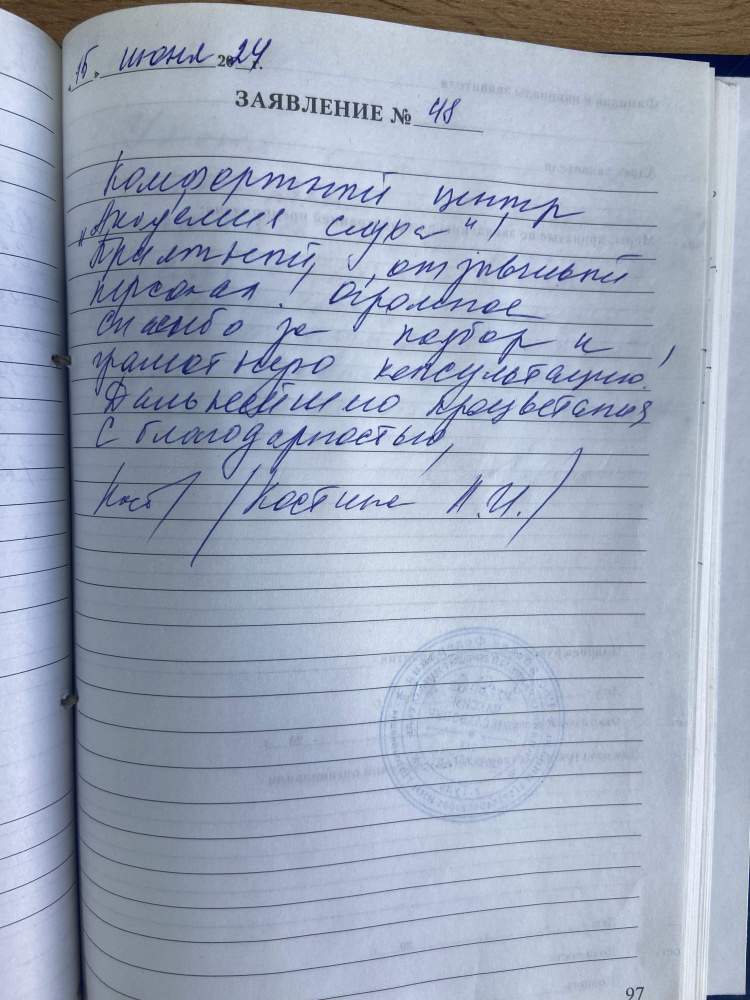 "15" июня 2024г.
ЗАЯВЛЕНИЕ № 48
Комфортный центр
"Академия слуха",
приятный, отзывчивый
персонал! Огромное
спасибо за подбор и
грамотную консультацию!
Дальнейшего процветания
С благодарностью,
Кост / Костина А.И. /
97